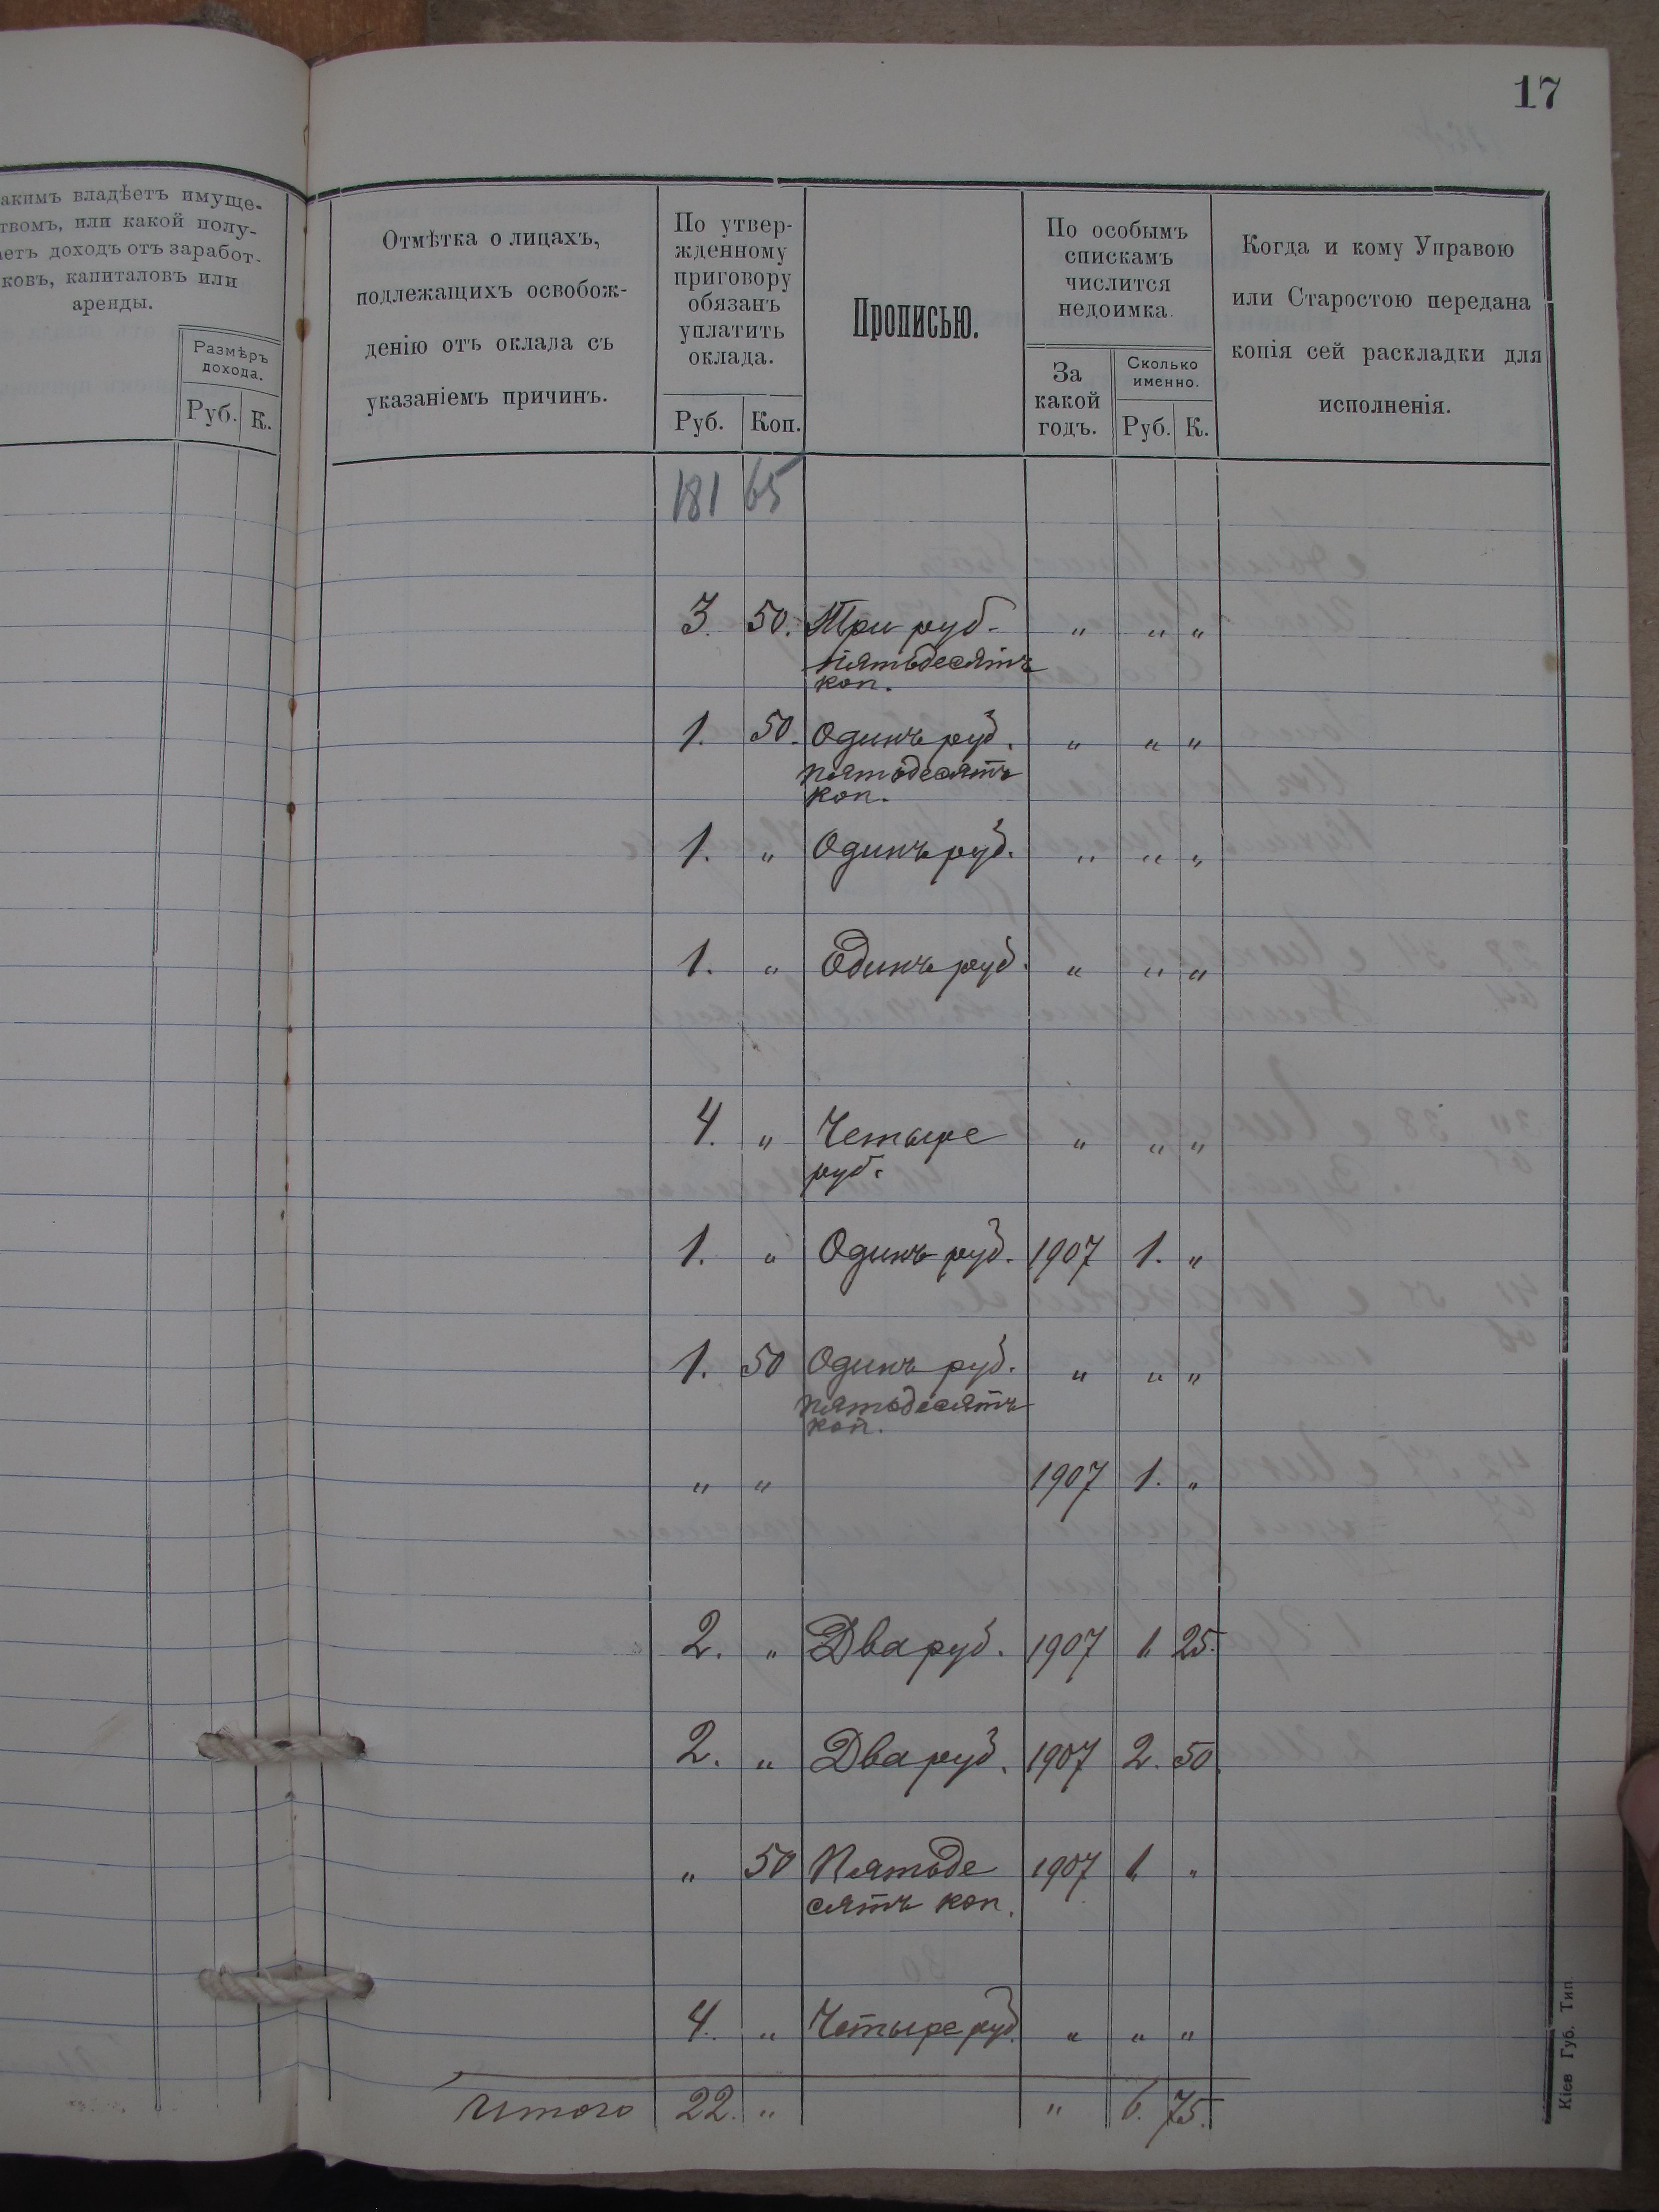 17
акимъ владѣетъ имуще-
твомъ, или какой полу-
аетъ доходъ отъ заработ-
ковъ, капиталовъ или
аренды.
Размѣръ
дохода.
Руб. К.
Отмѣтка о лицахъ,
подлежащихъ освобож-
денію отъ оклада съ
указаніемъ причинъ.
По утвер-
жденному
приговору
обязанъ
уплатить
оклада.
Руб. Коп.
Прописью.
По особымъ
спискамъ
числится
недоимка.
За
какой
годъ.
Сколько
именно.
Руб. К.
Когда и кому Управою
или Старостою передана
копія сей раскладки для
исполненія.
181 65
3. 50. Три руб. " " "
пятьдесятъ
коп.
1. 50. Одинъ руб. " " "
пятьдесятъ
коп.
1. " Одинъ руб. " " "
1. " Одинъ руб. " " "
4. " Четыре " " "
руб.
1. " Одинъ руб. 1907 1. "
1. 50 Одинъ руб. " " "
пятьдесятъ
коп.
" " 1907 1. "
2. " Два руб. 1907 1. 25.
2. " Два руб. 1907 2. 50.
" 50 Пятьде 1907 1. "
сятъ коп.
4. " Четыре руб. " " "
Итого 22. " " 6. 75.
Кіев Губ. Тип.